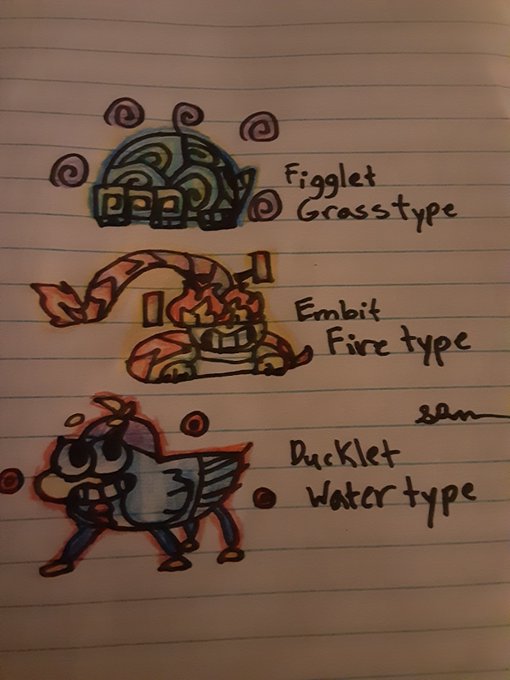 Figglet
Grasstype
Embit
Fire type
Sam
Ducklet
Water type